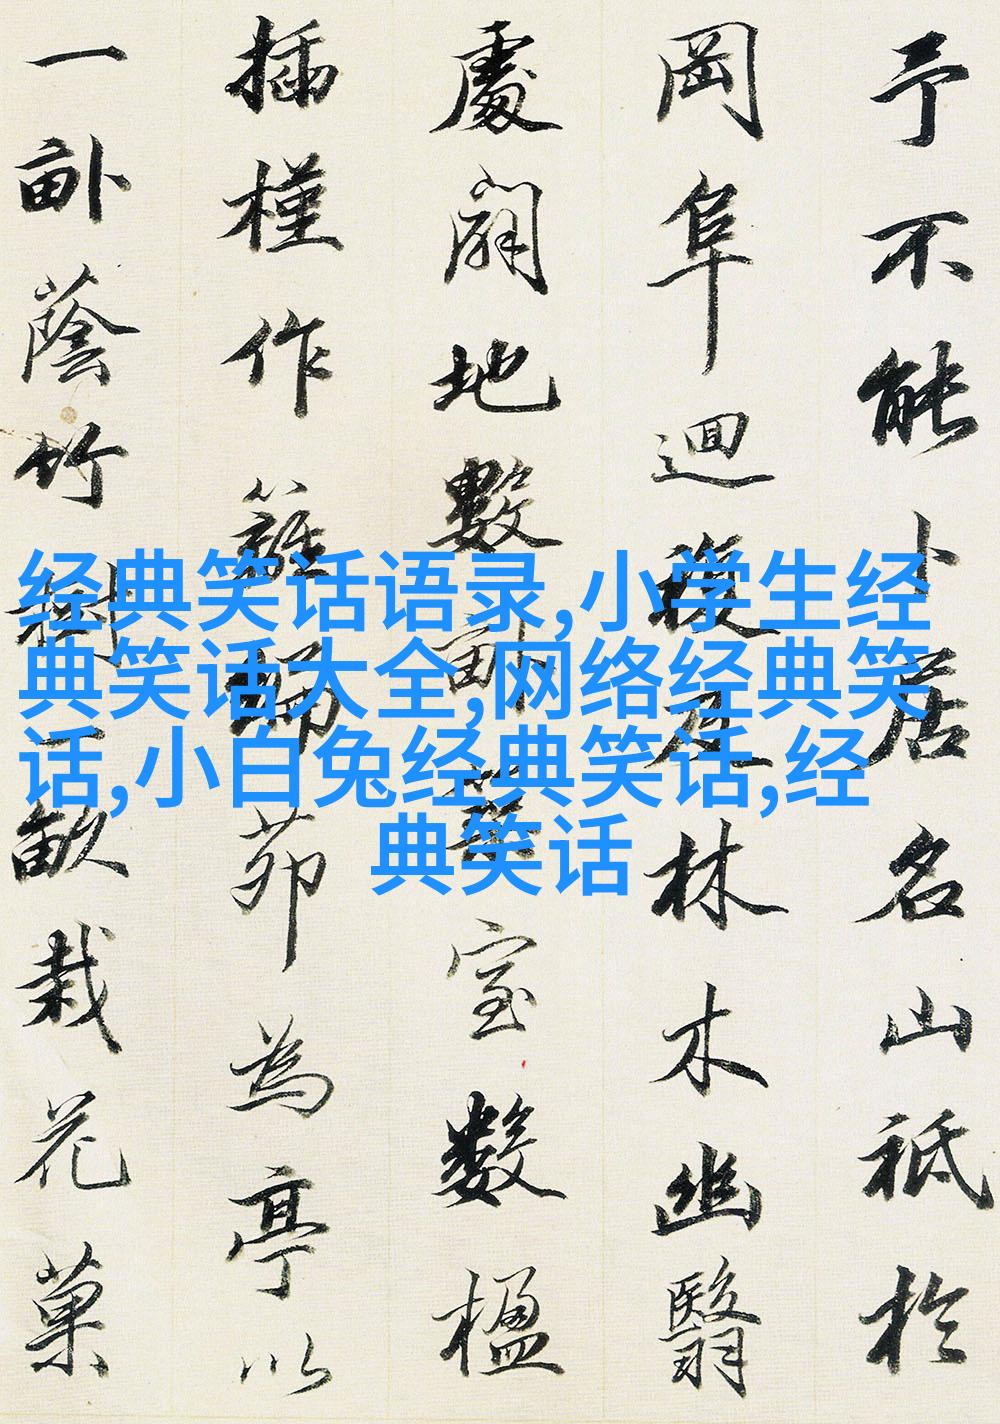 予不能卜居名山祗於
岡阜迴複及林木幽翳
處闢地數畝築室數楹
插槿作籬編茆為亭以
一畝蔭竹樹一畝栽花菓
经典笑话语录,小学生经
典笑话大全,网络经典笑
话,小白兔经典笑话,经
典笑话